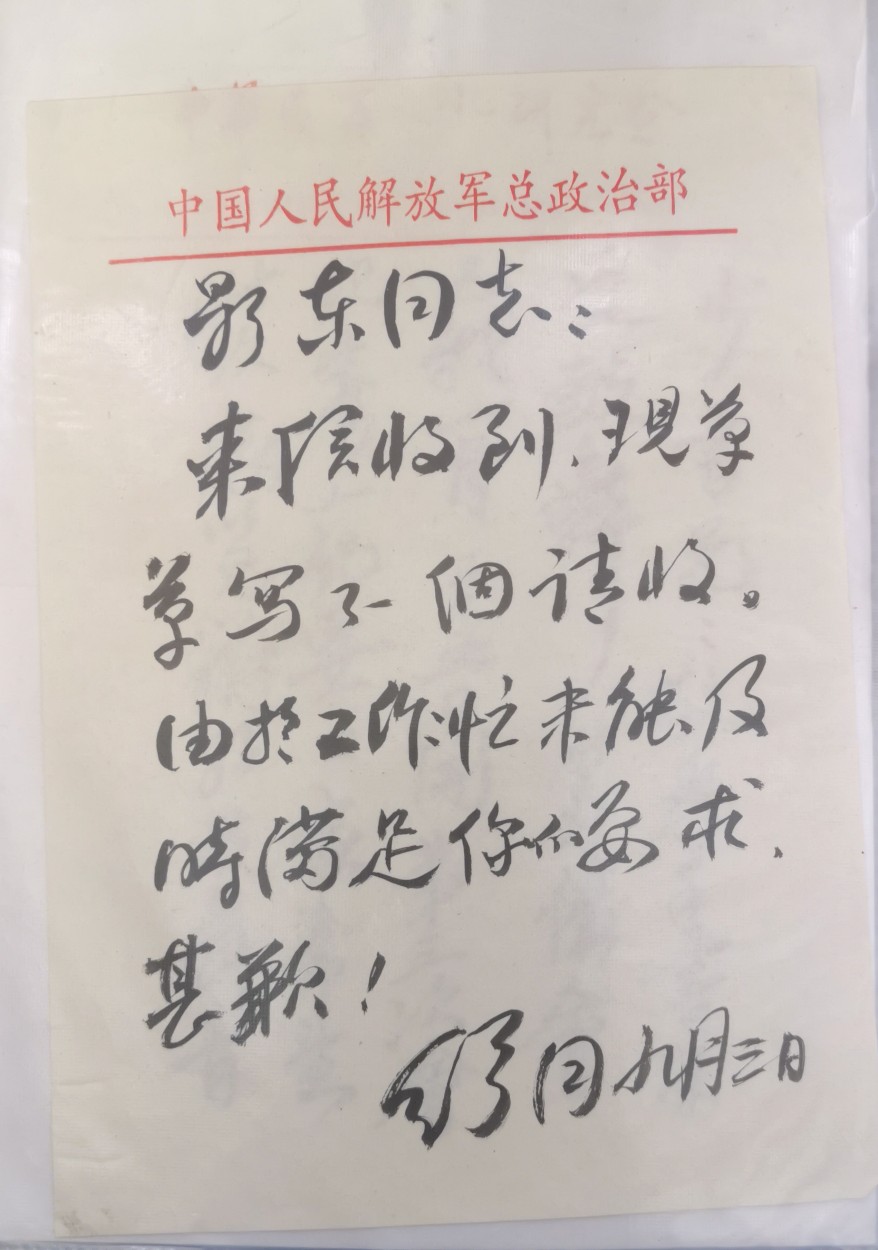 中国人民解放军总政治部
影东同志：
来信收到、現草
草写了一個请收。
由於工作忙未能及
時满足你的要求、
甚歉！
舒同九月三日